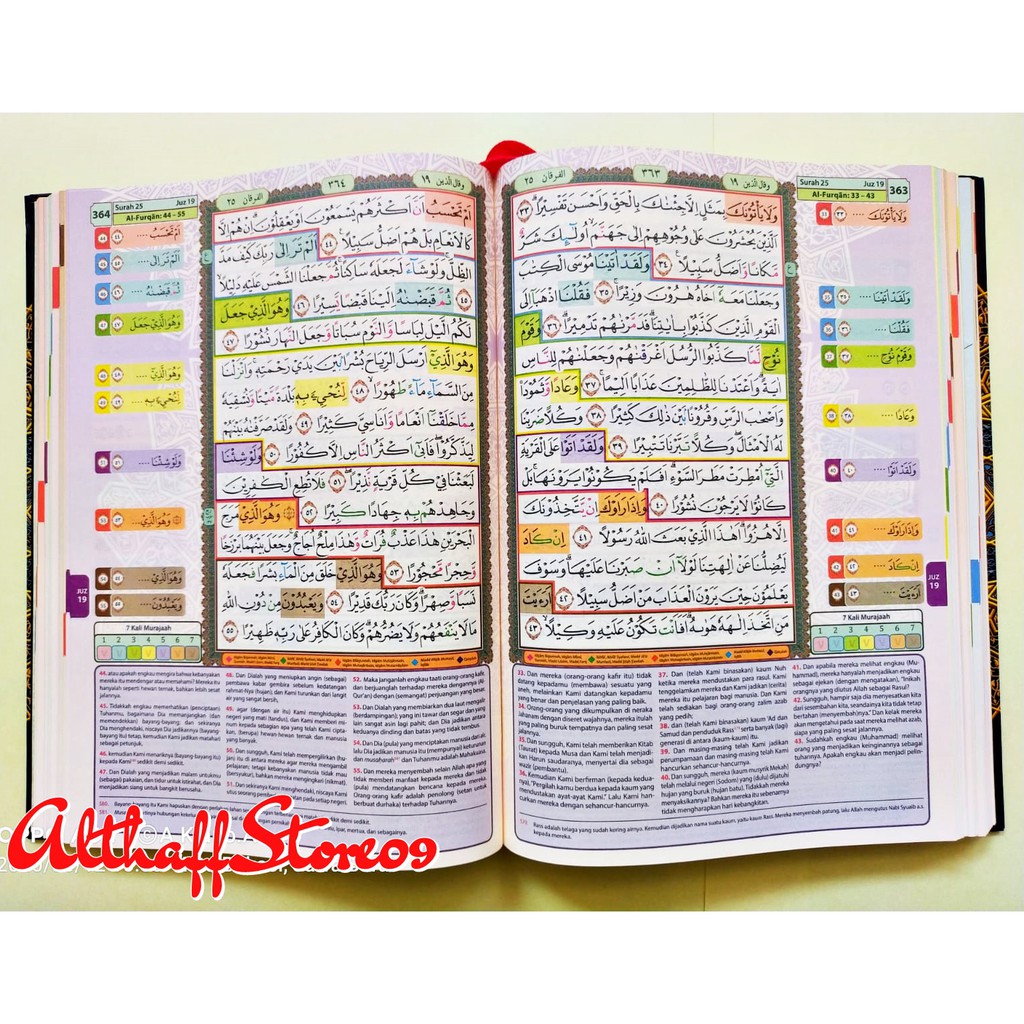 Surah 25 Juz 19
Al-Furqān: 33 – 43
363
وقال الذين ١٩
٣٦٣
الفرقان ٢٥
وَلَا يَأْتُوْنَكَ بِمَثَلٍ اِلَّا جِئْنٰكَ بِالْحَقِّ وَاَحْسَنَ تَفْسِيْرًا ۗ ٣٣
اَلَّذِيْنَ يُحْشَرُوْنَ عَلٰى وُجُوْهِهِمْ اِلٰى جَهَنَّمَۙ اُولٰۤىِٕكَ شَرٌّ
مَّكَانًا وَّاَضَلُّ سَبِيْلًا ࣖ ٣٤ وَلَقَدْ اٰتَيْنَا مُوْسَى الْكِتٰبَ
وَجَعَلْنَا مَعَهٗٓ اَخَاهُ هٰرُوْنَ وَزِيْرًا ۚ ٣٥ فَقُلْنَا اذْهَبَآ اِلَى
الْقَوْمِ الَّذِيْنَ كَذَّبُوْا بِاٰيٰتِنَاۗ فَدَمَّرْنٰهُمْ تَدْمِيْرًا ۗ ٣٦ وَقَوْمَ
نُوْحٍ لَّمَّا كَذَّبُوا الرُّسُلَ اَغْرَقْنٰهُمْ وَجَعَلْنٰهُمْ لِلنَّاسِ
اٰيَةًۗ وَاَعْتَدْنَا لِلظّٰلِمِيْنَ عَذَابًا اَلِيْمًا ۚ ٣٧ وَعَادًا وَّثَمُوْدَا۟
وَاَصْحٰبَ الرَّسِّ وَقُرُوْنًاۢ بَيْنَ ذٰلِكَ كَثِيْرًا ٣٨ وَكُلًّا ضَرَبْنَا
لَهُ الْاَمْثَالَۖ وَكُلًّا تَبَّرْنَا تَتْبِيْرًا ٣٩ وَلَقَدْ اَتَوْا عَلَى الْقَرْيَةِ
الَّتِيْٓ اُمْطِرَتْ مَطَرَ السَّوْءِۗ اَفَلَمْ يَكُوْنُوْا يَرَوْنَهَاۚ بَلْ
كَانُوْا لَا يَرْجُوْنَ نُشُوْرًا ٤٠ وَاِذَا رَاَوْكَ اِنْ يَّتَّخِذُوْنَكَ
اِلَّا هُزُوًاۗ اَهٰذَا الَّذِيْ بَعَثَ اللّٰهُ رَسُوْلًا ٤١ اِنْ كَادَ
لَيُضِلُّنَا عَنْ اٰلِهَتِنَا لَوْلَآ اَنْ صَبَرْنَا عَلَيْهَاۗ وَسَوْفَ
يَعْلَمُوْنَ حِيْنَ يَرَوْنَ الْعَذَابَ مَنْ اَضَلُّ سَبِيْلًا ٤٢ اَرَءَيْتَ
مَنِ اتَّخَذَ اِلٰهَهٗ هَوٰىهُۗ اَفَاَنْتَ تَكُوْنُ عَلَيْهِ وَكِيْلًا ۙ ٤٣
وَلَا يَأْتُوْنَكَ .... ٣٣
وَلَقَدْ اٰتَيْنَا .... ٣٥
فَقُلْنَا .... ٣٦
وَقَوْمَ نُوْحٍ .... ٣٧
وَعَادًا ....
وَلَقَدْ اَتَوْا .... ٤٠
وَاِذَا رَاَوْكَ .... ٤١
اِنْ كَادَ .... ٤٢
اَرَءَيْتَ .... ٤٣
JUZ
19
7 Kali Murajaah
1 2 3 4 5 6 7
33. Dan mereka (orang-orang kafir itu) tidak
datang kepadamu (membawa) sesuatu yang
aneh, melainkan Kami datangkan kepadamu
yang benar dan penjelasan yang paling baik.
34. Orang-orang yang dikumpulkan di neraka
Jahanam dengan diseret wajahnya, mereka itulah
yang paling buruk tempatnya dan paling sesat
jalannya.
35. Dan sungguh, Kami telah memberikan Kitab
(Taurat) kepada Musa dan Kami telah menjadikan
Harun saudaranya, menyertai dia sebagai
wazir (pembantu).
36. Kemudian Kami berfirman (kepada kedua-
nya), "Pergilah kamu berdua kepada kaum yang
mendustakan ayat-ayat Kami." Lalu Kami han-
curkan mereka dengan sehancur-hancurnya.
37. Dan (telah Kami binasakan) kaum Nuh
ketika mereka mendustakan para rasul. Kami
tenggelamkan mereka dan Kami jadikan (cerita)
mereka itu pelajaran bagi manusia. Dan Kami
telah sediakan bagi orang-orang zalim azab
yang pedih;
38. dan (telah Kami binasakan) kaum 'Ad dan
Samud dan penduduk Rass serta banyak (lagi)
generasi di antara (kaum-kaum) itu.
39. Dan masing-masing telah Kami jadikan
perumpamaan dan masing-masing telah Kami
hancurkan sehancur-hancurnya.
40. Dan sungguh, mereka (kaum musyrik Mekah)
telah melalui negeri (Sodom) yang (dulu) dijatuhi
hujan yang buruk (hujan batu). Tidakkah mereka
menyaksikannya? Bahkan mereka itu sebenarnya
tidak mengharapkan hari kebangkitan.
41. Dan apabila mereka melihat engkau (Mu-
hammad), mereka hanyalah menjadikan engkau
sebagai ejekan (dengan mengatakan), "Inikah
orangnya yang diutus Allah sebagai Rasul?
42. Sungguh, hampir saja dia menyesatkan kita
dari sesembahan kita, seandainya kita tidak tetap
bertahan (menyembah)nya." Dan kelak mereka
akan mengetahui pada saat mereka melihat azab,
siapa yang paling sesat jalannya.
43. Sudahkah engkau (Muhammad) melihat
orang yang menjadikan keinginannya sebagai
tuhannya. Apakah engkau akan menjadi pelin-
dungnya?
Rass adalah telaga yang sudah kering airnya. Kemudian dijadikan nama suatu kaum, yaitu kaum Rass. Mereka menyembah patung, lalu Allah mengutus Nabi Syuaib a.s.
kepada mereka.
364
Surah 25 Juz 19
Al-Furqān: 44 – 55
وقال الذين ١٩
٣٦٤
الفرقان ٢٥
اَمْ تَحْسَبُ اَنَّ اَكْثَرَهُمْ يَسْمَعُوْنَ اَوْ يَعْقِلُوْنَۗ اِنْ هُمْ اِلَّا
كَالْاَنْعَامِ بَلْ هُمْ اَضَلُّ سَبِيْلًا ࣖ ٤٤ اَلَمْ تَرَ اِلٰى رَبِّكَ كَيْفَ مَدَّ
الظِّلَّۚ وَلَوْ شَاۤءَ لَجَعَلَهٗ سَاكِنًاۚ ثُمَّ جَعَلْنَا الشَّمْسَ عَلَيْهِ دَلِيْلًا ۙ
٤٥ ثُمَّ قَبَضْنٰهُ اِلَيْنَا قَبْضًا يَّسِيْرًا ٤٦ وَهُوَ الَّذِيْ جَعَلَ
لَكُمُ الَّيْلَ لِبَاسًا وَّالنَّوْمَ سُبَاتًا وَّجَعَلَ النَّهَارَ نُشُوْرًا ٤٧
وَهُوَ الَّذِيْٓ اَرْسَلَ الرِّيٰحَ بُشْرًاۢ بَيْنَ يَدَيْ رَحْمَتِهٖۚ وَاَنْزَلْنَا
مِنَ السَّمَاۤءِ مَاۤءً طَهُوْرًا ۙ ٤٨ لِّنُحْيِ َۧ بِهٖ بَلْدَةً مَّيْتًا وَّنُسْقِيَهٗ
مِمَّا خَلَقْنَآ اَنْعَامًا وَّاَنَاسِيَّ كَثِيْرًا ٤٩ وَلَقَدْ صَرَّفْنٰهُ بَيْنَهُمْ
لِيَذَّكَّرُوْاۖ فَاَبٰىٓ اَكْثَرُ النَّاسِ اِلَّا كُفُوْرًا ٥٠ وَلَوْ شِئْنَا
لَبَعَثْنَا فِيْ كُلِّ قَرْيَةٍ نَّذِيْرًا ۖ ٥١ فَلَا تُطِعِ الْكٰفِرِيْنَ
وَجَاهِدْهُمْ بِهٖ جِهَادًا كَبِيْرًا ٥٢ وَهُوَ الَّذِيْ مَرَجَ
الْبَحْرَيْنِ هٰذَا عَذْبٌ فُرَاتٌ وَّهٰذَا مِلْحٌ اُجَاجٌۚ وَجَعَلَ بَيْنَهُمَا بَرْزَخًا
وَّحِجْرًا مَّحْجُوْرًا ٥٣ وَهُوَ الَّذِيْ خَلَقَ مِنَ الْمَاۤءِ بَشَرًا فَجَعَلَهٗ
نَسَبًا وَّصِهْرًاۗ وَكَانَ رَبُّكَ قَدِيْرًا ٥٤ وَيَعْبُدُوْنَ مِنْ دُوْنِ اللّٰهِ
مَا لَا يَنْفَعُهُمْ وَلَا يَضُرُّهُمْۗ وَكَانَ الْكَافِرُ عَلٰى رَبِّهٖ ظَهِيْرًا ٥٥
اَمْ تَحْسَبُ .... ٤٤
اَلَمْ تَرَ اِلٰى ....
ثُمَّ قَبَضْنٰهُ .... ٤٦
وَهُوَ الَّذِيْ جَعَلَ ٤٧
وَهُوَ الَّذِيْٓ ....
لِّنُحْيِ َۧ بِهٖ .... ٤٩
وَلَوْ شِئْنَا ....
وَهُوَ الَّذِيْ .... ٥٣
وَهُوَ الَّذِيْ ....
وَيَعْبُدُوْنَ ....
JUZ
19
7 Kali Murajaah
1 2 3 4 5 6 7
44. atau apakah engkau mengira bahwa kebanyakan
mereka itu mendengar atau memahami? Mereka itu
hanyalah seperti hewan ternak, bahkan lebih sesat
jalannya.
45. Tidakkah engkau memerhatikan (penciptaan)
Tuhanmu, bagaimana Dia memanjangkan (dan
memendekkan) bayang-bayang; dan sekiranya
Dia menghendaki, niscaya Dia jadikannya (bayang-
bayang itu) tetap, kemudian Kami jadikan matahari
sebagai petunjuk,
46. kemudian Kami menariknya (bayang-bayang itu)
kepada Kami sedikit demi sedikit.
47. Dan Dialah yang menjadikan malam untukmu
(sebagai) pakaian, dan tidur untuk istirahat, dan Dia
menjadikan siang untuk bangkit berusaha.
48. Dan Dialah yang meniupkan angin (sebagai)
pembawa kabar gembira sebelum kedatangan
rahmat-Nya (hujan); dan Kami turunkan dari langit
air yang sangat bersih,
49. agar (dengan air itu) Kami menghidupkan
negeri yang mati (tandus), dan Kami memberi mi-
num kepada sebagian apa yang telah Kami cipta-
kan, (berupa) hewan-hewan ternak dan manusia
yang banyak.
50. Dan sungguh, Kami telah mempergilirkan (hu-
jan) itu di antara mereka agar mereka mengambil
pelajaran; tetapi kebanyakan manusia tidak mau
(bersyukur), bahkan mereka mengingkari (nikmat).
51. Dan sekiranya Kami menghendaki, niscaya Kami
52. Maka janganlah engkau taati orang-orang kafir,
dan berjuanglah terhadap mereka dengannya (Al-
Qur'an) dengan (semangat) perjuangan yang besar.
53. Dan Dialah yang membiarkan dua laut mengalir
(berdampingan); yang ini tawar dan segar dan yang
lain sangat asin lagi pahit; dan Dia jadikan antara
keduanya dinding dan batas yang tidak tembus.
54. Dan Dia (pula) yang menciptakan manusia dari air,
lalu Dia jadikan manusia itu (mempunyai) keturunan
dan musaharah dan Tuhanmu adalah Mahakuasa.
55. Dan mereka menyembah selain Allah apa yang
tidak memberi manfaat kepada mereka dan tidak
(pula) mendatangkan bencana kepada mereka.
Orang-orang kafir adalah penolong (setan untuk
berbuat durhaka) terhadap Tuhannya.
AlthaffStore09